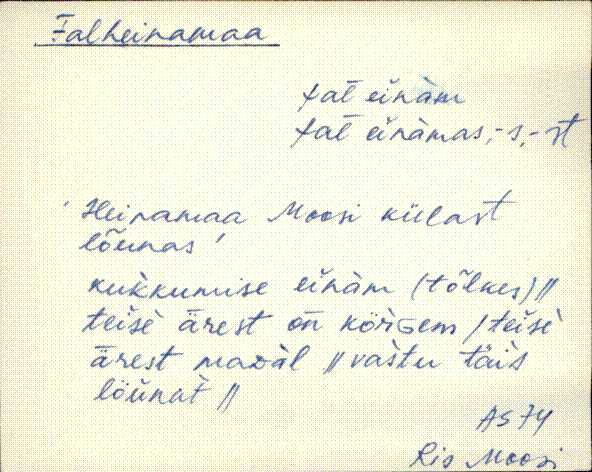 Falheinamaa
fat einàm
fat einàmas, -s, -st
' Heinamaa Moosi külast
lõunas '
kukkumise einàm (tõlkes) //
teisè ärest on kõrGem / teisè
ärest madàl // vastu täis
lõunàt //
AS 74
Ris Moosi